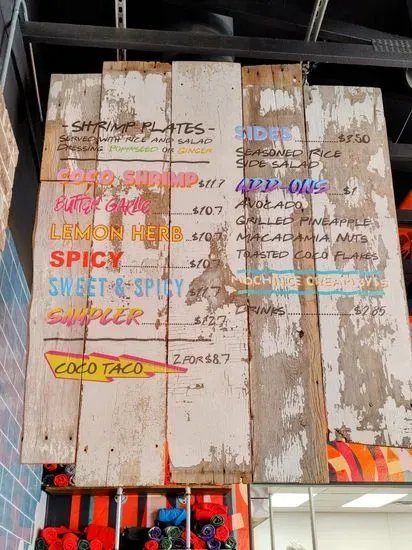 -SHRIMP PLATES-
SERVED WITH RICE AND SALAD
DRESSING POPPYSEED OR GINGER
COCO SHRIMP $11.7
BUTTER GARLIC $10.7
LEMON HERB $10.7
SPICY $10.7
SWEET & SPICY
SAMPLER $12.7
COCO TACO 2 FOR $8.7
SIDES $3.50
SEASONED RICE
SIDE SALAD
ADD-ONS $1
AVOCADO
GRILLED PINEAPPLE
MACADAMIA NUTS
TOASTED COCO FLAKES
DRINKS